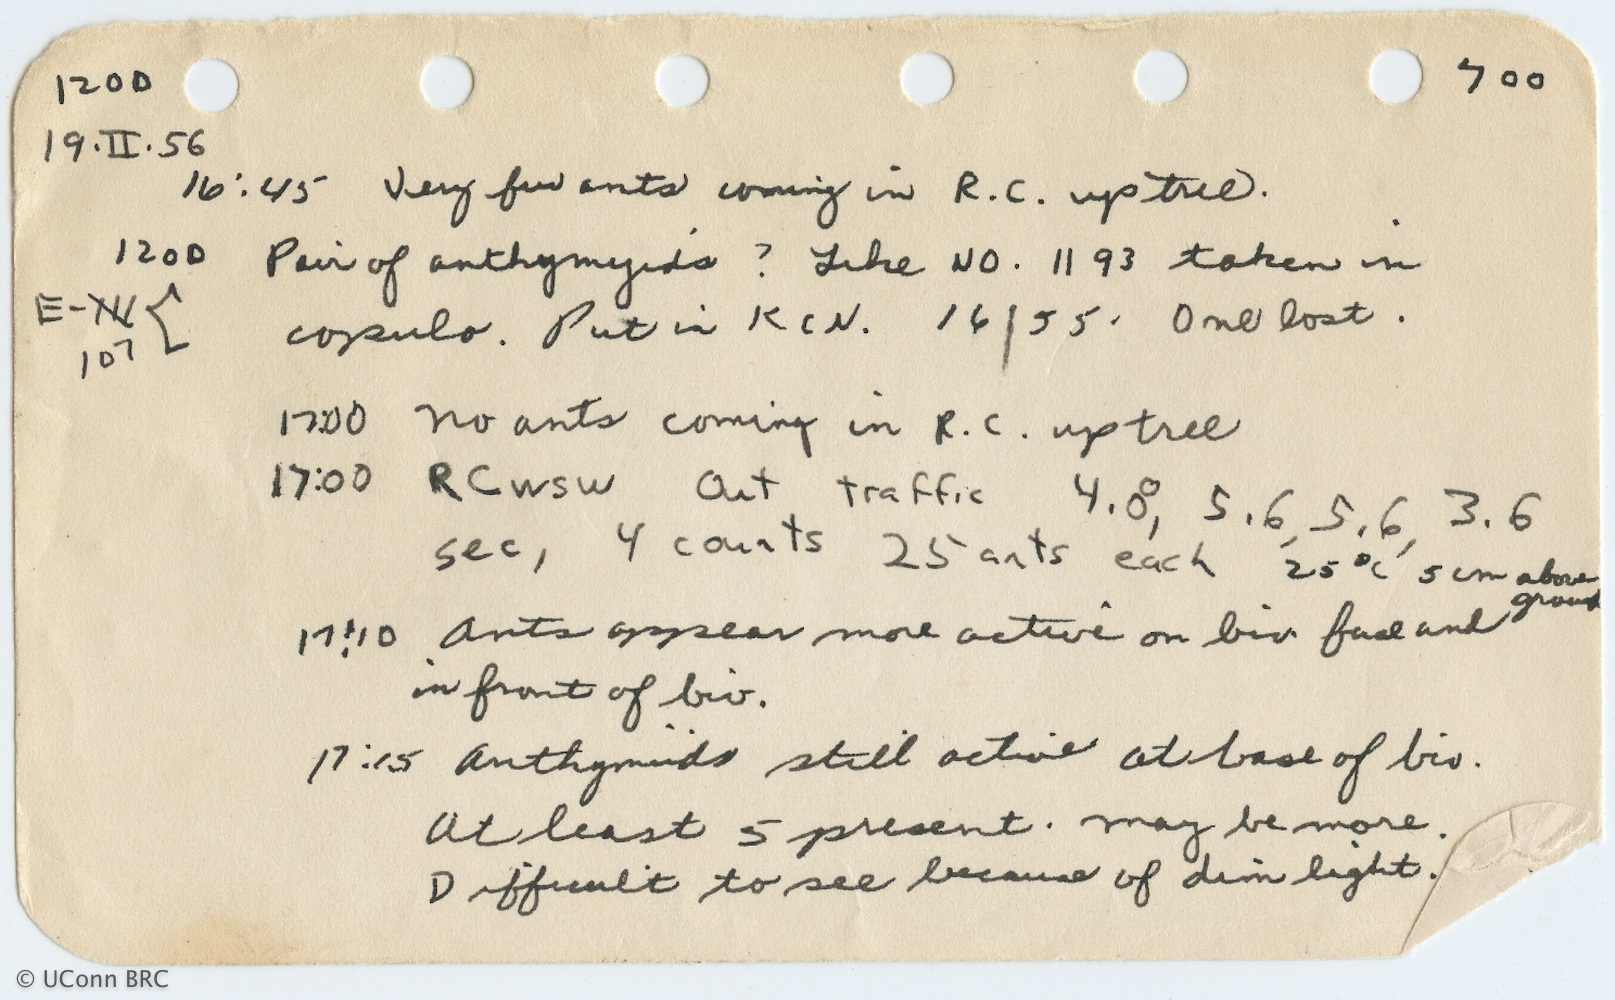 1200 700
19.II.56
16:45 Very few ants coming in R.C. up tree.
1200 Pair of anthymyids ? Like NO. 1193 taken in
E-XV
107
copulo. Put in KCN. 16/55. One lost.
17:00 No ants coming in R.C. up tree
17:00 RCWSW Out traffic 4.8, 5.6, 5.6, 3.6
sec, 4 counts 25 ants each 25°C 5 cm above
ground
17:10 Ants appear more active on biv. face and
in front of biv.
17:15 Anthymiids still active at base of biv.
At least 5 present. May be more.
Difficult to see because of dim light.
© UConn BRC